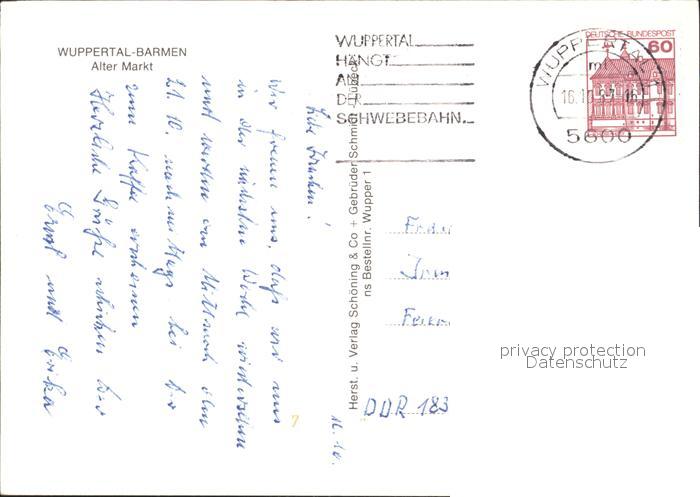 WUPPERTAL-BARMEN
Alter Markt
WUPPERTAL
HÄNGT
AN
DER
SCHWEBEBAHN.
DEUTSCHE BUNDESPOST
60
WUPPERTAL 1
16.10.
5600
Herst. u. Verlag Schöning & Co + Gebrüder Schmidt, Lübeck
ns Bestellnr. Wupper 1
16.10.
Liebe
Wir freuen uns, daß wir uns
in der nächsten Woche wiedersehen
und werden am Mittwoch dem
21. 10. nachmittags bei Dir
zum Kaffee erscheinen
Herzliche Grüße schicken Dir
Ernst und Erika
DDR 183
privacy protection
Datenschutz